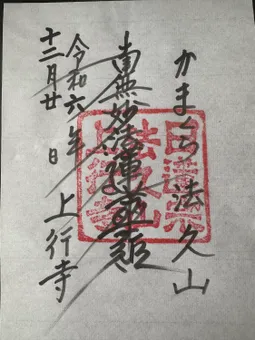 かまくら 法久山
南無妙法蓮華経
令和六年
十二月廿日
上行寺